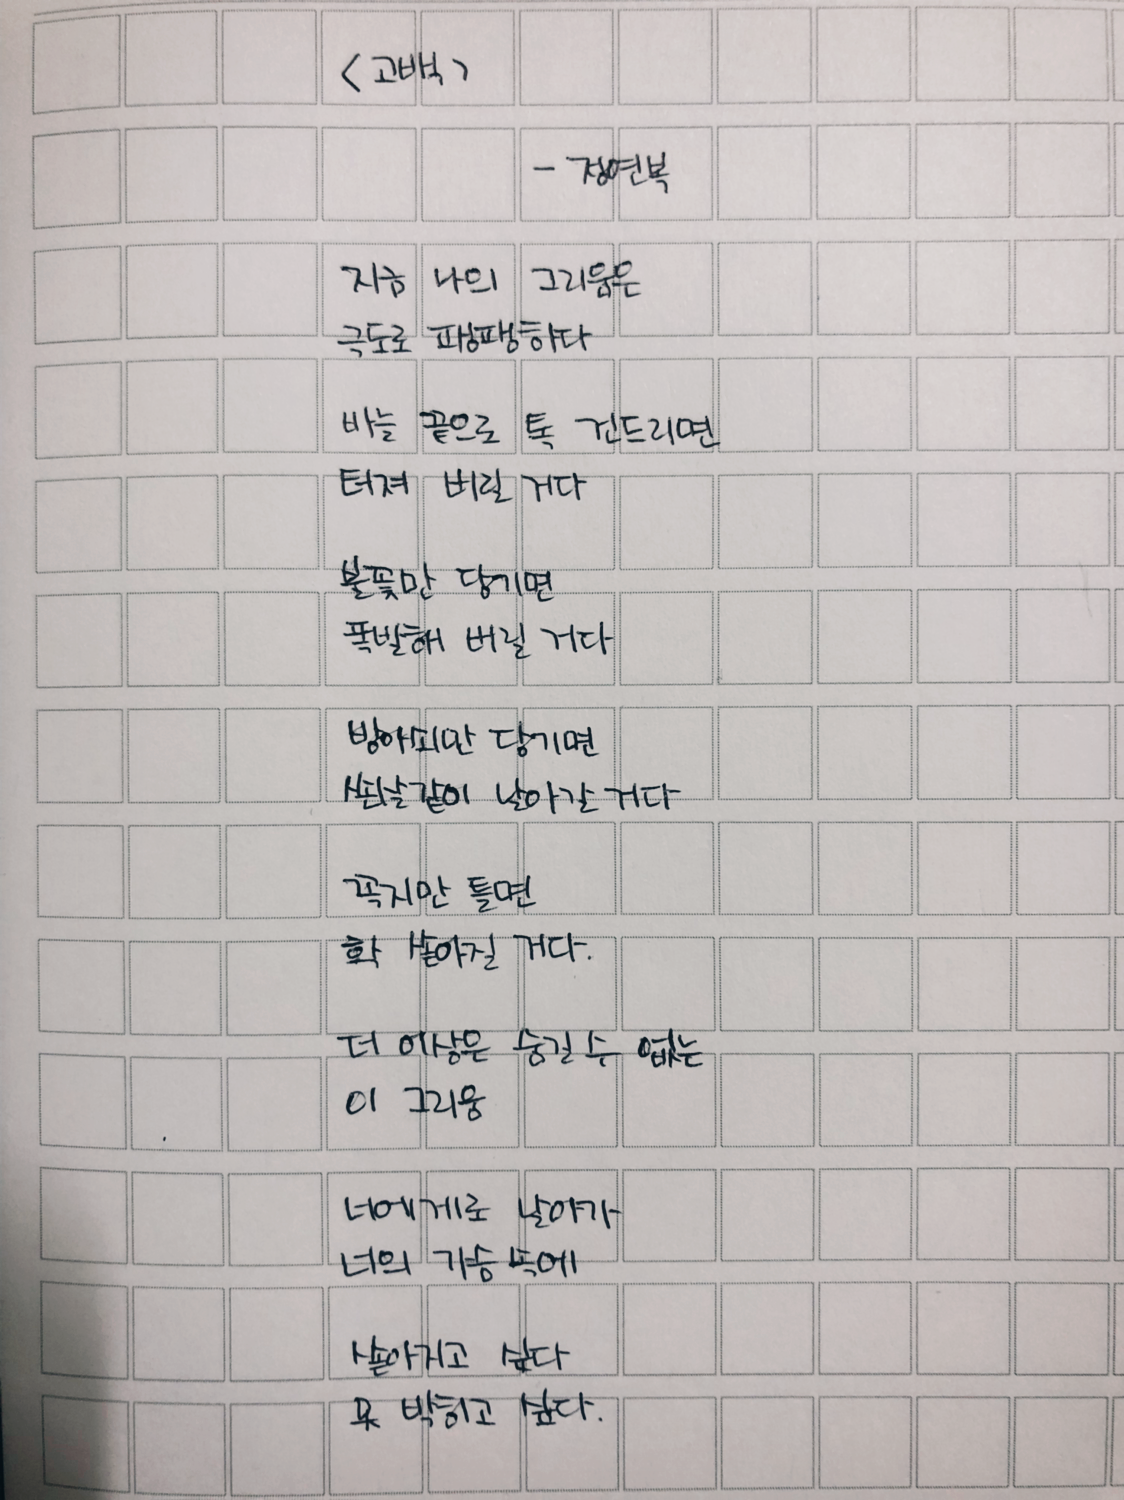 <고백>
- 정연복
지금 나의 그리움은
극도로 팽팽하다
바늘 끝으로 톡 건드리면
터져 버릴 거다
불꽃만 당기면
폭발해 버릴 거다
방아쇠만 당기면
쏜살같이 날아갈 거다
꼭지만 틀면
확 쏟아질 거다.
더 이상은 숨길 수 없는
이 그리움
너에게로 날아가
너의 가슴 속에
쏟아지고 싶다
못 박히고 싶다.